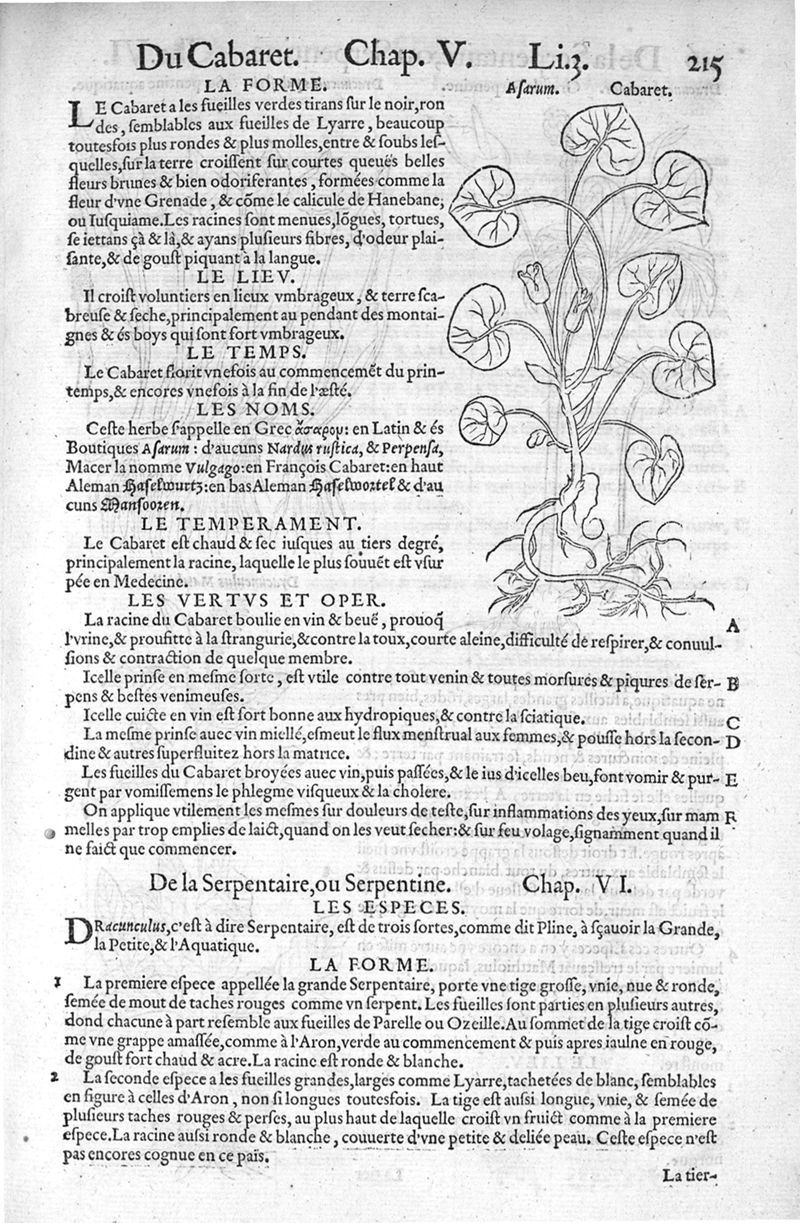 Du Cabaret. Chap. V. Li.3. 215
LA FORME.
Asarum. Cabaret.
LE Cabaret a les fueilles verdes tirans ſur le noir, ron
des, ſemblables aux fueilles de Lyarre, beaucoup
toutesfois plus rondes & plus molles, entre & ſoubs leſ-
quelles, ſur la terre croiſſent ſur courtes queuës belles
fleurs brunes & bien odoriferantes, formées comme la
fleur d'vne Grenade, & cõme le calicule de Hanebane,
ou Iuſquiame. Les racines ſont menues, lõgues, tortues,
ſe iettans çà & là, & ayans pluſieurs fibres, d'odeur plai-
ſante, & de gouſt piquant à la langue.
LE LIEV.
Il croiſt voluntiers en lieux vmbrageux, & terre ſca-
breuſe & ſeche, principalement au pendant des montai-
gnes & és boys qui ſont fort vmbrageux.
LE TEMPS.
Le Cabaret florit vnefois au commencemẽt du prin-
temps, & encores vnefois à la fin de l'æſté.
LES NOMS.
Ceſte herbe ſ'appelle en Grec ἄσαρον: en Latin & és
Boutiques Aſarum: d'aucuns Nardus ruſtica, & Perpenſa,
Macer la nomme Vulgago: en François Cabaret: en haut
Aleman Haſelwurtz: en bas Aleman Haſelwortel & d'au
cuns Manſooren.
LE TEMPERAMENT.
Le Cabaret eſt chaud & ſec iuſques au tiers degré,
principalement la racine, laquelle le plus ſouuẽt eſt vſur
pée en Medecine.
LES VERTVS ET OPER.
La racine du Cabaret boulie en vin & beuë, prouoq̃ A
l'vrine, & proufitte à la ſtrangurie, & contre la toux, courte aleine, difficulté de reſpirer, & conuul-
ſions & contraction de quelque membre.
Icelle prinſe en meſme ſorte, eſt vtile contre tout venin & toutes morſures & piqures de ſer- B
pens & beſtes venimeuſes.
Icelle cuicte en vin eſt fort bonne aux hydropiques, & contre la ſciatique. C
La meſme prinſe auec vin miellé, eſmeut le flux menſtrual aux femmes, & pouſſe hors la ſecon- D
dine & autres ſuperfluitez hors la matrice.
Les fueilles du Cabaret broyées auec vin, puis paſſées, & le ius d'icelles beu, font vomir & pur- E
gent par vomiſſemens le phlegme viſqueux & la cholere.
On applique vtilement les meſmes ſur douleurs de teſte, ſur inflammations des yeux, ſur mam F
melles par trop emplies de laict, quand on les veut ſecher: & ſur feu volage, ſignamment quand il
ne faict que commencer.
De la Serpentaire, ou Serpentine. Chap. VI.
LES ESPECES.
DRacunculus, c'eſt à dire Serpentaire, eſt de trois ſortes, comme dit Pline, à ſçauoir la Grande,
la Petite, & l'Aquatique.
LA FORME.
1 La premiere eſpece appellée la grande Serpentaire, porte vne tige groſſe, vnie, nue & ronde,
ſemée de mout de taches rouges comme vn ſerpent. Les fueilles ſont parties en pluſieurs autres,
dond chacune à part reſemble aux fueilles de Parelle ou Ozeille. Au ſommet de la tige croiſt cõ-
me vne grappe amaſſée, comme à l'Aron, verde au commencement & puis apres iaulne en rouge,
de gouſt fort chaud & acre. La racine eſt ronde & blanche.
2 La ſeconde eſpece a les fueilles grandes, larges comme Lyarre, tachetées de blanc, ſemblables
en figure à celles d'Aron, non ſi longues toutesfois. La tige eſt auſſi longue, vnie, & ſemée de
pluſieurs taches rouges & perſes, au plus haut de laquelle croiſt vn fruict comme à la premiere
eſpece. La racine auſſi ronde & blanche, couuerte d'vne petite & deliée peau. Ceſte eſpece n'eſt
pas encores cognue en ce païs.
La tier-